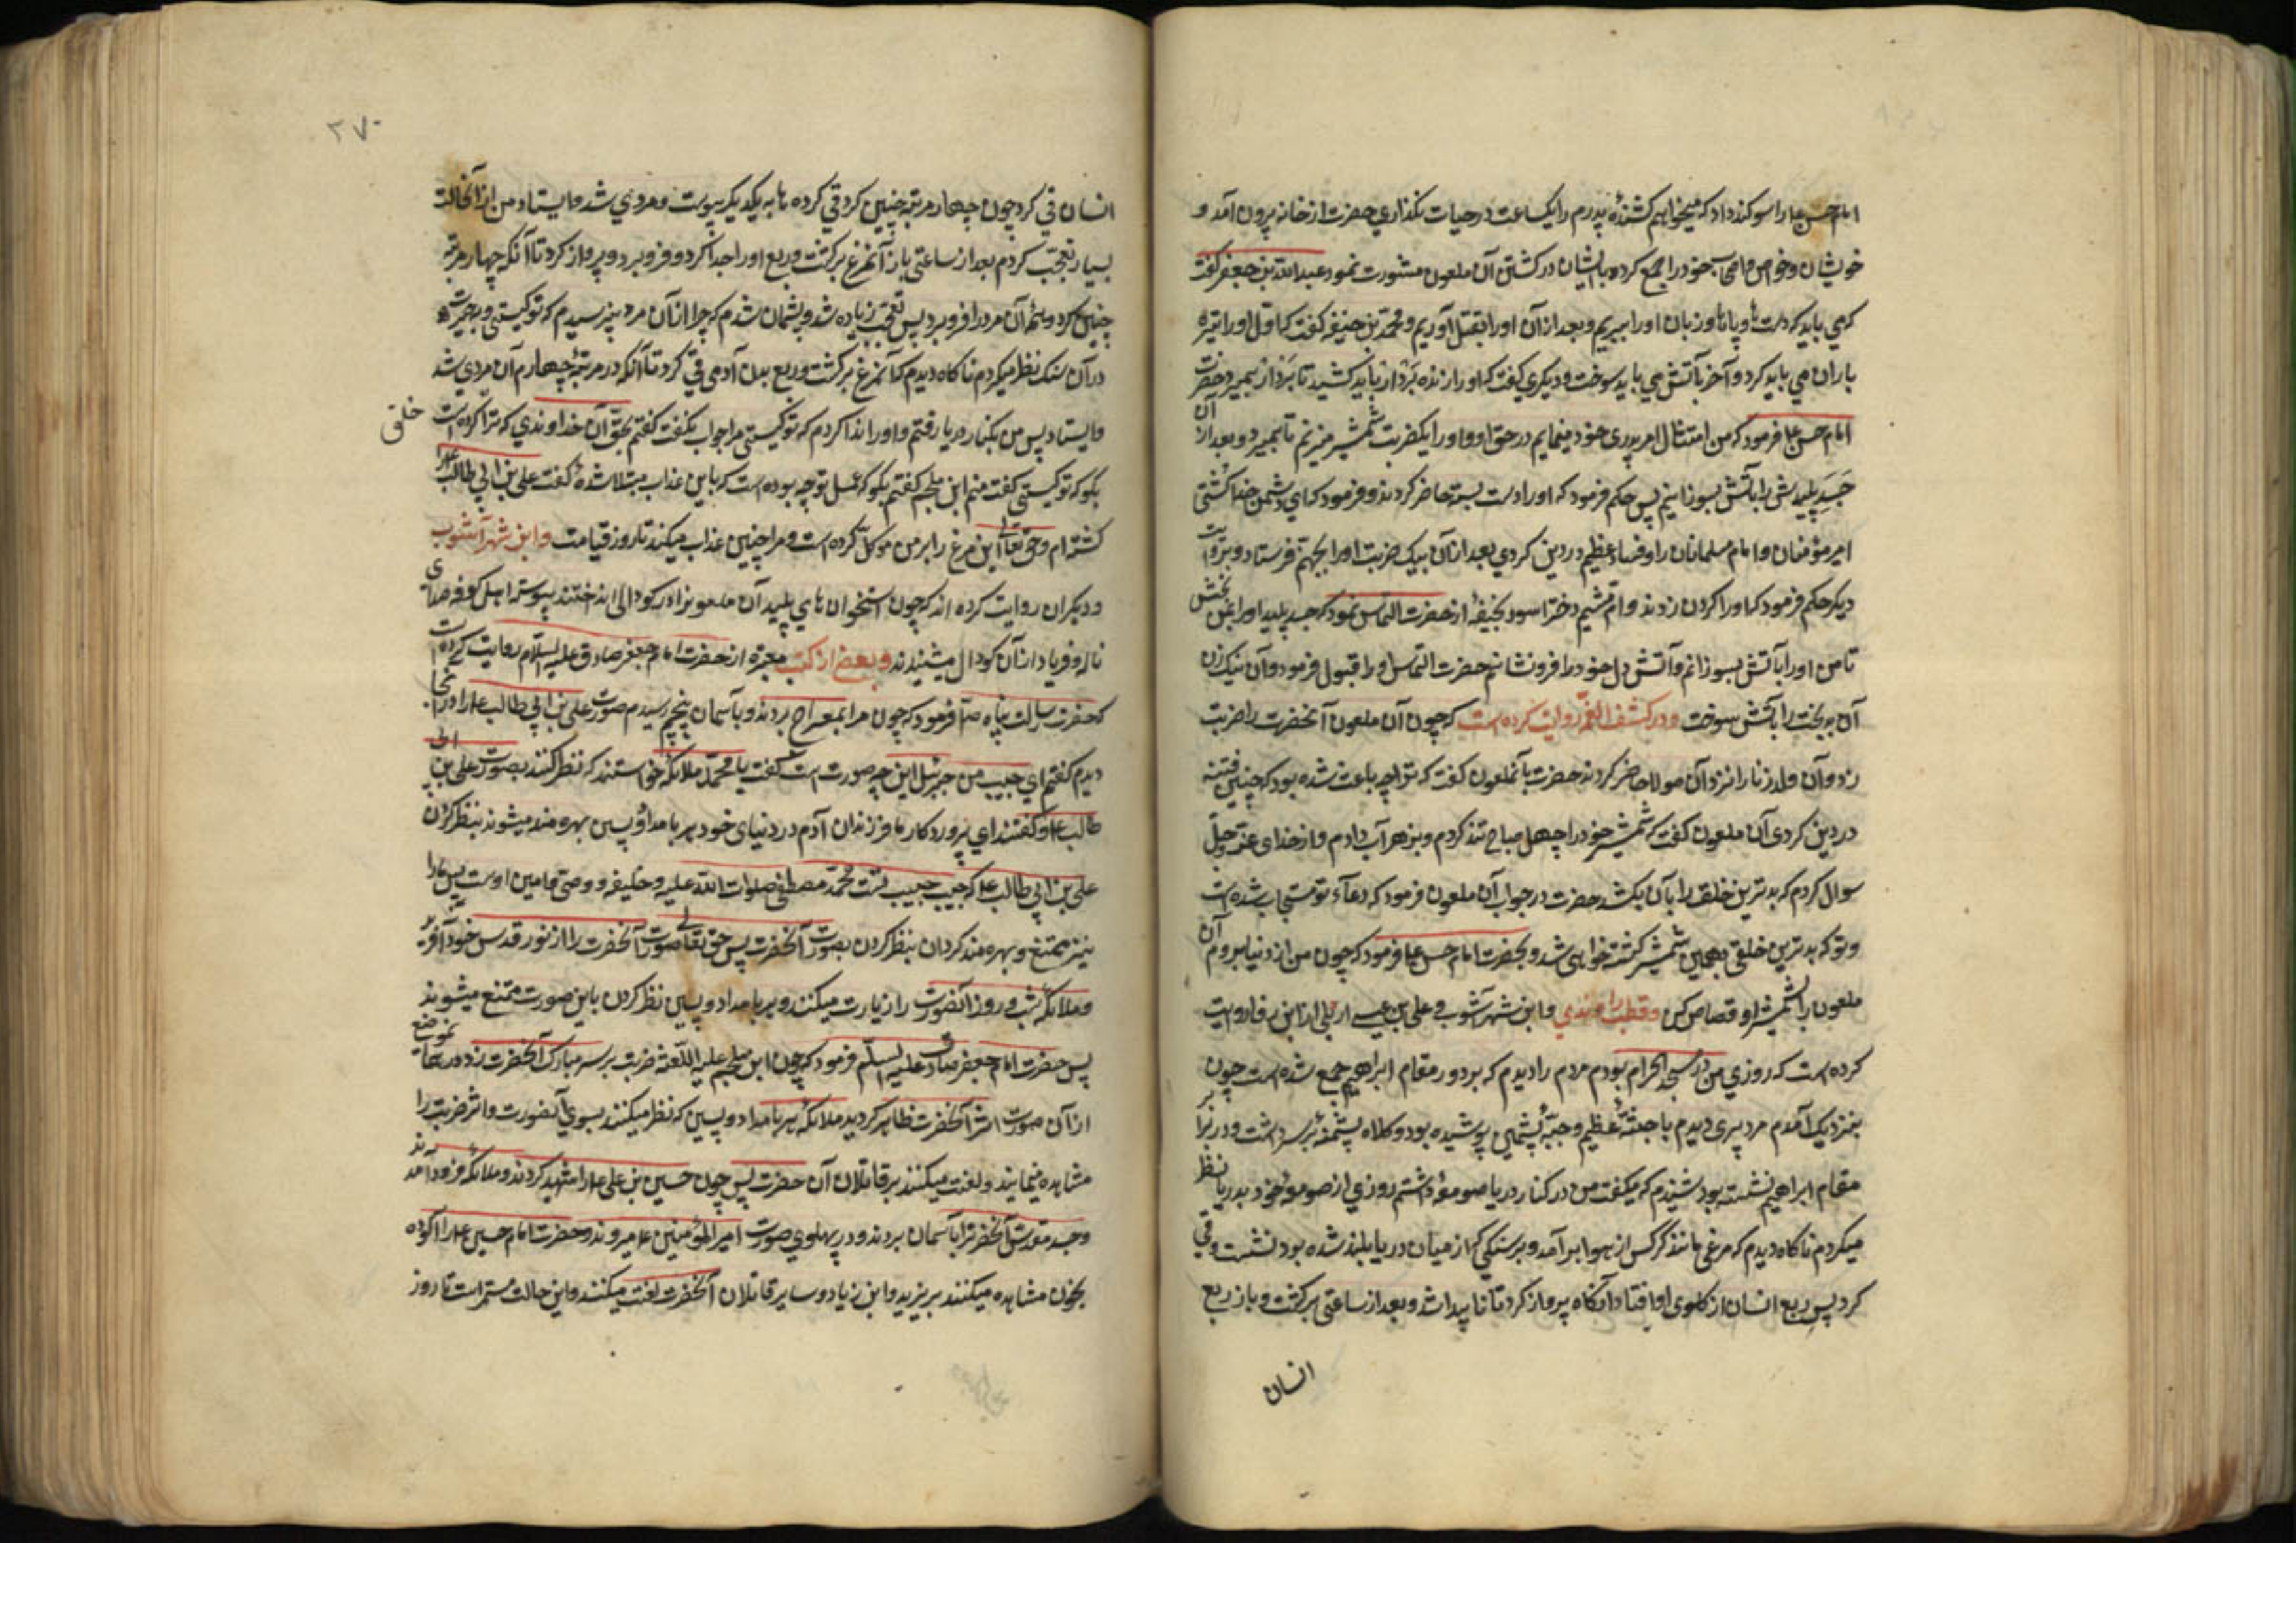 امام حسن ع را سوکند داد که میخواهم کشندهٔ پدرم را یکساعت در حیات نکذاری حضرت از خانه بیرون آمد و
خویشان و خواص و اصحاب خود را جمع کرده با ایشان در کشتن آن ملعون مشورت نمود عبدالله بن جعفر کفت
که می باید که دست ها و پاها و زبان او را ببریم و بعد از آن او را بقتل آوریم و محمد بن حنیفه کفت که اول او را تیره
باران می باید کرد و آخر بآتش می باید سوخت و دیکری کفت که او را زنده بَردار باید کشید تا بَردار بمیرد حضرت
امام حسن ع فرمود که من امتثال امر پدری خود مینمایم در حق او و او را یکضربت شمشیر میزنم تا بمیرد و بعد از آن
جَسَدِ پلیدش را بآتش بسوزانیم پس حکم فرمود که او را دست بسته حاضر کردند و فرمود که ای دشمن خدا کشتی
امیر مؤمنان و امام مسلمانان را و فساد عظیم در دین کردی بعد از آن بیک ضربت او را بجهنم فرستاد و بروایت
دیکر حکم فرمود که او را کردن زدند و ام هثیم دختر اسود نخعیه از حضرت التماس نمود که جسد پلید او را بمن بخش
تا من او را بآتش بسوزانم و آتش دل خود را فرونشانم حضرت التماس او را قبول فرمود و آن نیک زن
آن بدبخت را بآتش سوخت و در کشف الغمه روایت کرده است که چون آن ملعون آنحضرت را ضربت
زد و آن ولدزنا را نزد آن مولا حاضر کردند حضرت بآنملعون کفت که ترا چه باعث شده بود که چنین فتنه
در دین کردی آن ملعون کفت که شمشیر خود را چهل صباح تند کردم و بزهر آب دادم و از خدای عز و جلّ
سوال کردم که بدترین خلق را بآن بکشد حضرت در جواب آن ملعون فرمود که دعآء تو مستجاب شده است
و تو که بدترین خلقی بهمین شمشیر کشته خواهی شد و بحضرت امام حسن ع فرمود که چون من از دنیا بروم آن
ملعون را بشمشیر او قصاص کن و قطب راوندی و ابن شهرآشوب و علی بن عیسی اربلی از ابن رفا روایت
کرده است که روزی من در مسجد الحرام بودم مردم را دیدم که بر دور مقام ابراهیم جمع شده است چون
بنزدیک آمدم مرد پیری دیدم با جثّهٔ عظیم و جبّهٔ پشمین پوشیده بود و کلاه پشمینه بر سر داشت و در برابر
مقام ابراهیم نشسته بود شنیدم که میکفت من در کنار دریا صومعهٔ داشتم روزی از صومعهٔ خود بدریا نظر
میکردم ناکاه دیدم که مرغی مانند کرکس از هوا برآمد و بر سنکی که از میان دریا بلند شده بود نشست و قی
کرد پس ربع انسان از کلوی او افتاد آنکاه پرواز کرد تا ناپیدا شد و بعد از ساعتی برکشت و باز ربع
انسان
٢٧٠
انسان قی کرد چون چهار مرتبه چنین کرد قی کرده ها به یکدیکر پیوست و مردی شد و ایستاد من از آنحالت
بسیار تعجب کردم بعد از ساعتی باز آنمرغ برکشت و ربع او را جدا کرد و فرو برد و پرواز کرد تا آنکه چهار مرتبه
چنین کرد و تمام آن مرد را فرو برد پس تعجب زیاده شد و پشمان شدم که چرا از آن مرد نپرسیدم که تو کیستی و
در آن سنک نظر میکردم ناکاه دیدم که آنمرغ برکشت و ربع بدن آدمی قی کرد تا آنکه در مرتبهٔ چهارم آن مردی شد
و ایستاد پس من بکنار دریا رفتم و او را ندا کردم که تو کیستی مرا جواب نکفت کفتم بحقّ آن خداوندی که ترا کرده است
خلق
بکو که تو کیستی کفت منم ابن ملجم کفتم بکو که عمل تو چه بوده است که باین عذاب مبتلا شدهٔ کفت علی بن ابی طالب ع را
کشته ام و حق تعالی این مرغ را بر من موکّل کرده است و مرا چنین عذاب میکند تا روز قیامت و ابن شهرآشوب
و دیکران روایت کرده اند که چون استخوان های پلید آن ملعون را در کودالی انداختند پیوسته اهل کوفه صدای
ناله و فریاد از آن کودال میشنیدند و بعض از کتب معتبره از حضرت امام جعفر صادق علیه السلام روایت کرده است
که حضرت رسالت پناه ص فرمود که چون مرا بمعراج بردند و بآسمان پنجم رسیدم صورت علی بن ابی طالب ع را در آنجا
دیدم کفتم ای حبیب من جبرئیل این چه صورت است کفت یا محمد ملائکه خواستند که نظر کنند بصورت علی بن ابی
طالب ع و کفتند ای پروردکار ما فرزندان آدم در دنیای خود هر بامداد و پسین بهره مند میشوند بنظر کردن
علی بن ابی طالب ع که حبیب حبیب تست محمد مصطفی صلوات الله علیه و خلیفه و وصی و امین اوست پس ما را
نیز متمتع و بهره مند کردان بنظر کردن بصورت آنحضرت پس حق تعالی صورت آنحضرت را از نور قدس خود آفرید
و ملائکه شب و روز آنصورت را زیارت میکنند و هر بامداد و پسین نظر کردن باین صورت متمتع میشوند
پس حضرت امام جعفر صادق علیه السلام فرمود که چون ابن ملجم علیه اللعنه ضربت بر سر مبارک آنحضرت زد در همان موضع
از آن صورت اثر آنحضرت ظاهر کردید ملائکه هر بامداد و پسین که نظر میکنند بسوی آنصورت و اثر ضربت را
مشاهده مینمایند و لعنت میکنند بر قاتلان آن حضرت پس چون حسین بن علی ع را شهید کردند و ملائکه فرود آمدند
و جسد مقدس آنحضرت را بآسمان بردند و در پهلوی صورت امیرالمؤمنین ع و حضرت امام حسین ع را آلوده
بخون مشاهده میکنند بر یزید و ابن زیاد و سایر قاتلان آنحضرت لعنت میکنند و این حالت مستمر است تا روز